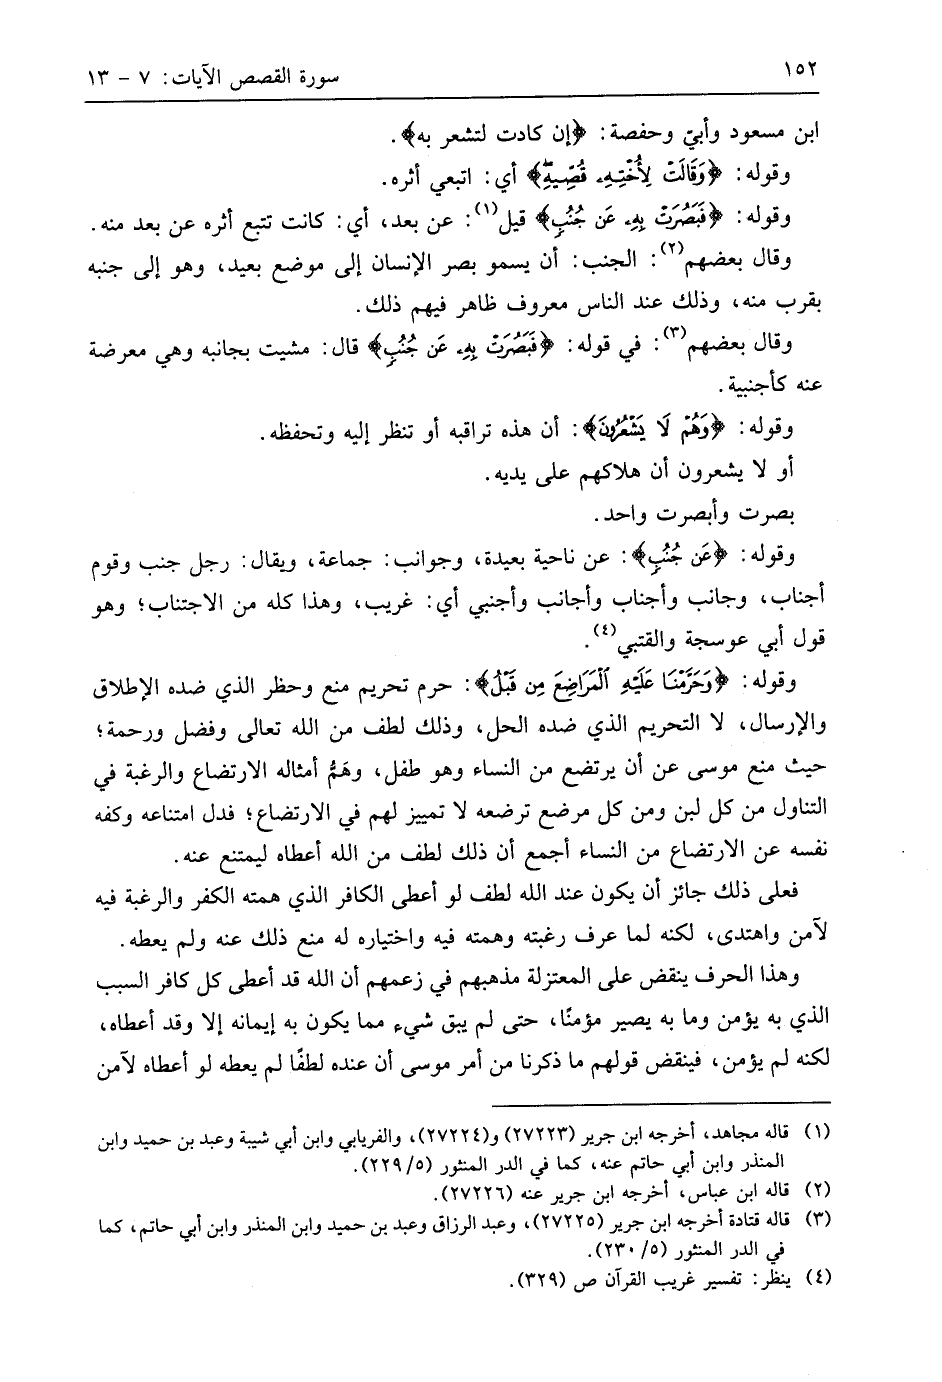 ١٥٢
سورة القصص الآيات: ٧ - ١٣
ابن مسعود وأبيّ وحفصة: ﴿إن كادت لتشعر به﴾.
وقوله: ﴿وَقَالَتْ لِأُخْتِهِۦ قُصِّيهِۖ﴾ أي: اتبعي أثره.
وقوله: ﴿فَبَصُرَتْ بِهِۦ عَن جُنُبٍ﴾ قيل(١): عن بعد، أي: كانت تتبع أثره عن بعد منه.
وقال بعضهم(٢): الجنب: أن يسمو بصر الإنسان إلى موضع بعيد، وهو إلى جنبه
بقرب منه، وذلك عند الناس معروف ظاهر فيهم ذلك.
وقال بعضهم(٣): في قوله: ﴿فَبَصُرَتْ بِهِۦ عَن جُنُبٍ﴾ قال: مشيت بجانبه وهي معرضة
عنه كأجنبية.
وقوله: ﴿وَهُمْ لَا يَشْعُرُونَ﴾: أن هذه تراقبه أو تنظر إليه وتحفظه.
أو لا يشعرون أن هلاكهم على يديه.
بصرت وأبصرت واحد.
وقوله: ﴿عَن جُنُبٍ﴾: عن ناحية بعيدة، وجوانب: جماعة، ويقال: رجل جنب وقوم
أجناب، وجانب وأجناب وأجانب وأجنبي أي: غريب، وهذا كله من الاجتناب؛ وهو
قول أبي عوسجة والقتبي(٤).
وقوله: ﴿وَحَرَّمْنَا عَلَيْهِ ٱلْمَرَاضِعَ مِن قَبْلُ﴾: حرم تحريم منع وحظر الذي ضده الإطلاق
والإرسال، لا التحريم الذي ضده الحل، وذلك لطف من الله تعالى وفضل ورحمة؛
حيث منع موسى عن أن يرتضع من النساء وهو طفل، وهَمُّ أمثاله الارتضاع والرغبة في
التناول من كل لبن ومن كل مرضع ترضعه لا تمييز لهم في الارتضاع؛ فدل امتناعه وكفه
نفسه عن الارتضاع من النساء أجمع أن ذلك لطف من الله أعطاه ليمتنع عنه.
فعلى ذلك جائز أن يكون عند الله لطف لو أعطى الكافر الذي همته الكفر والرغبة فيه
لآمن واهتدى، لكنه لما عرف رغبته وهمته فيه واختياره له منع ذلك عنه ولم يعطه.
وهذا الحرف ينقض على المعتزلة مذهبهم في زعمهم أن الله قد أعطى كل كافر السبب
الذي به يؤمن وما به يصير مؤمنًا، حتى لم يبق شيء مما يكون به إيمانه إلا وقد أعطاه،
لكنه لم يؤمن، فينقض قولهم ما ذكرنا من أمر موسى أن عنده لطفًا لم يعطه لو أعطاه لآمن
(١) قاله مجاهد، أخرجه ابن جرير (٢٧٢٢٣) و(٢٧٢٢٤)، والفريابي وابن أبي شيبة وعبد بن حميد وابن
المنذر وابن أبي حاتم عنه، كما في الدر المنثور (٥/ ٢٢٩).
(٢) قاله ابن عباس، أخرجه ابن جرير عنه (٢٧٢٢٦).
(٣) قاله قتادة أخرجه ابن جرير (٢٧٢٢٥)، وعبد الرزاق وعبد بن حميد وابن المنذر وابن أبي حاتم، كما
في الدر المنثور (٥/ ٢٣٠).
(٤) ينظر: تفسير غريب القرآن ص (٣٢٩).